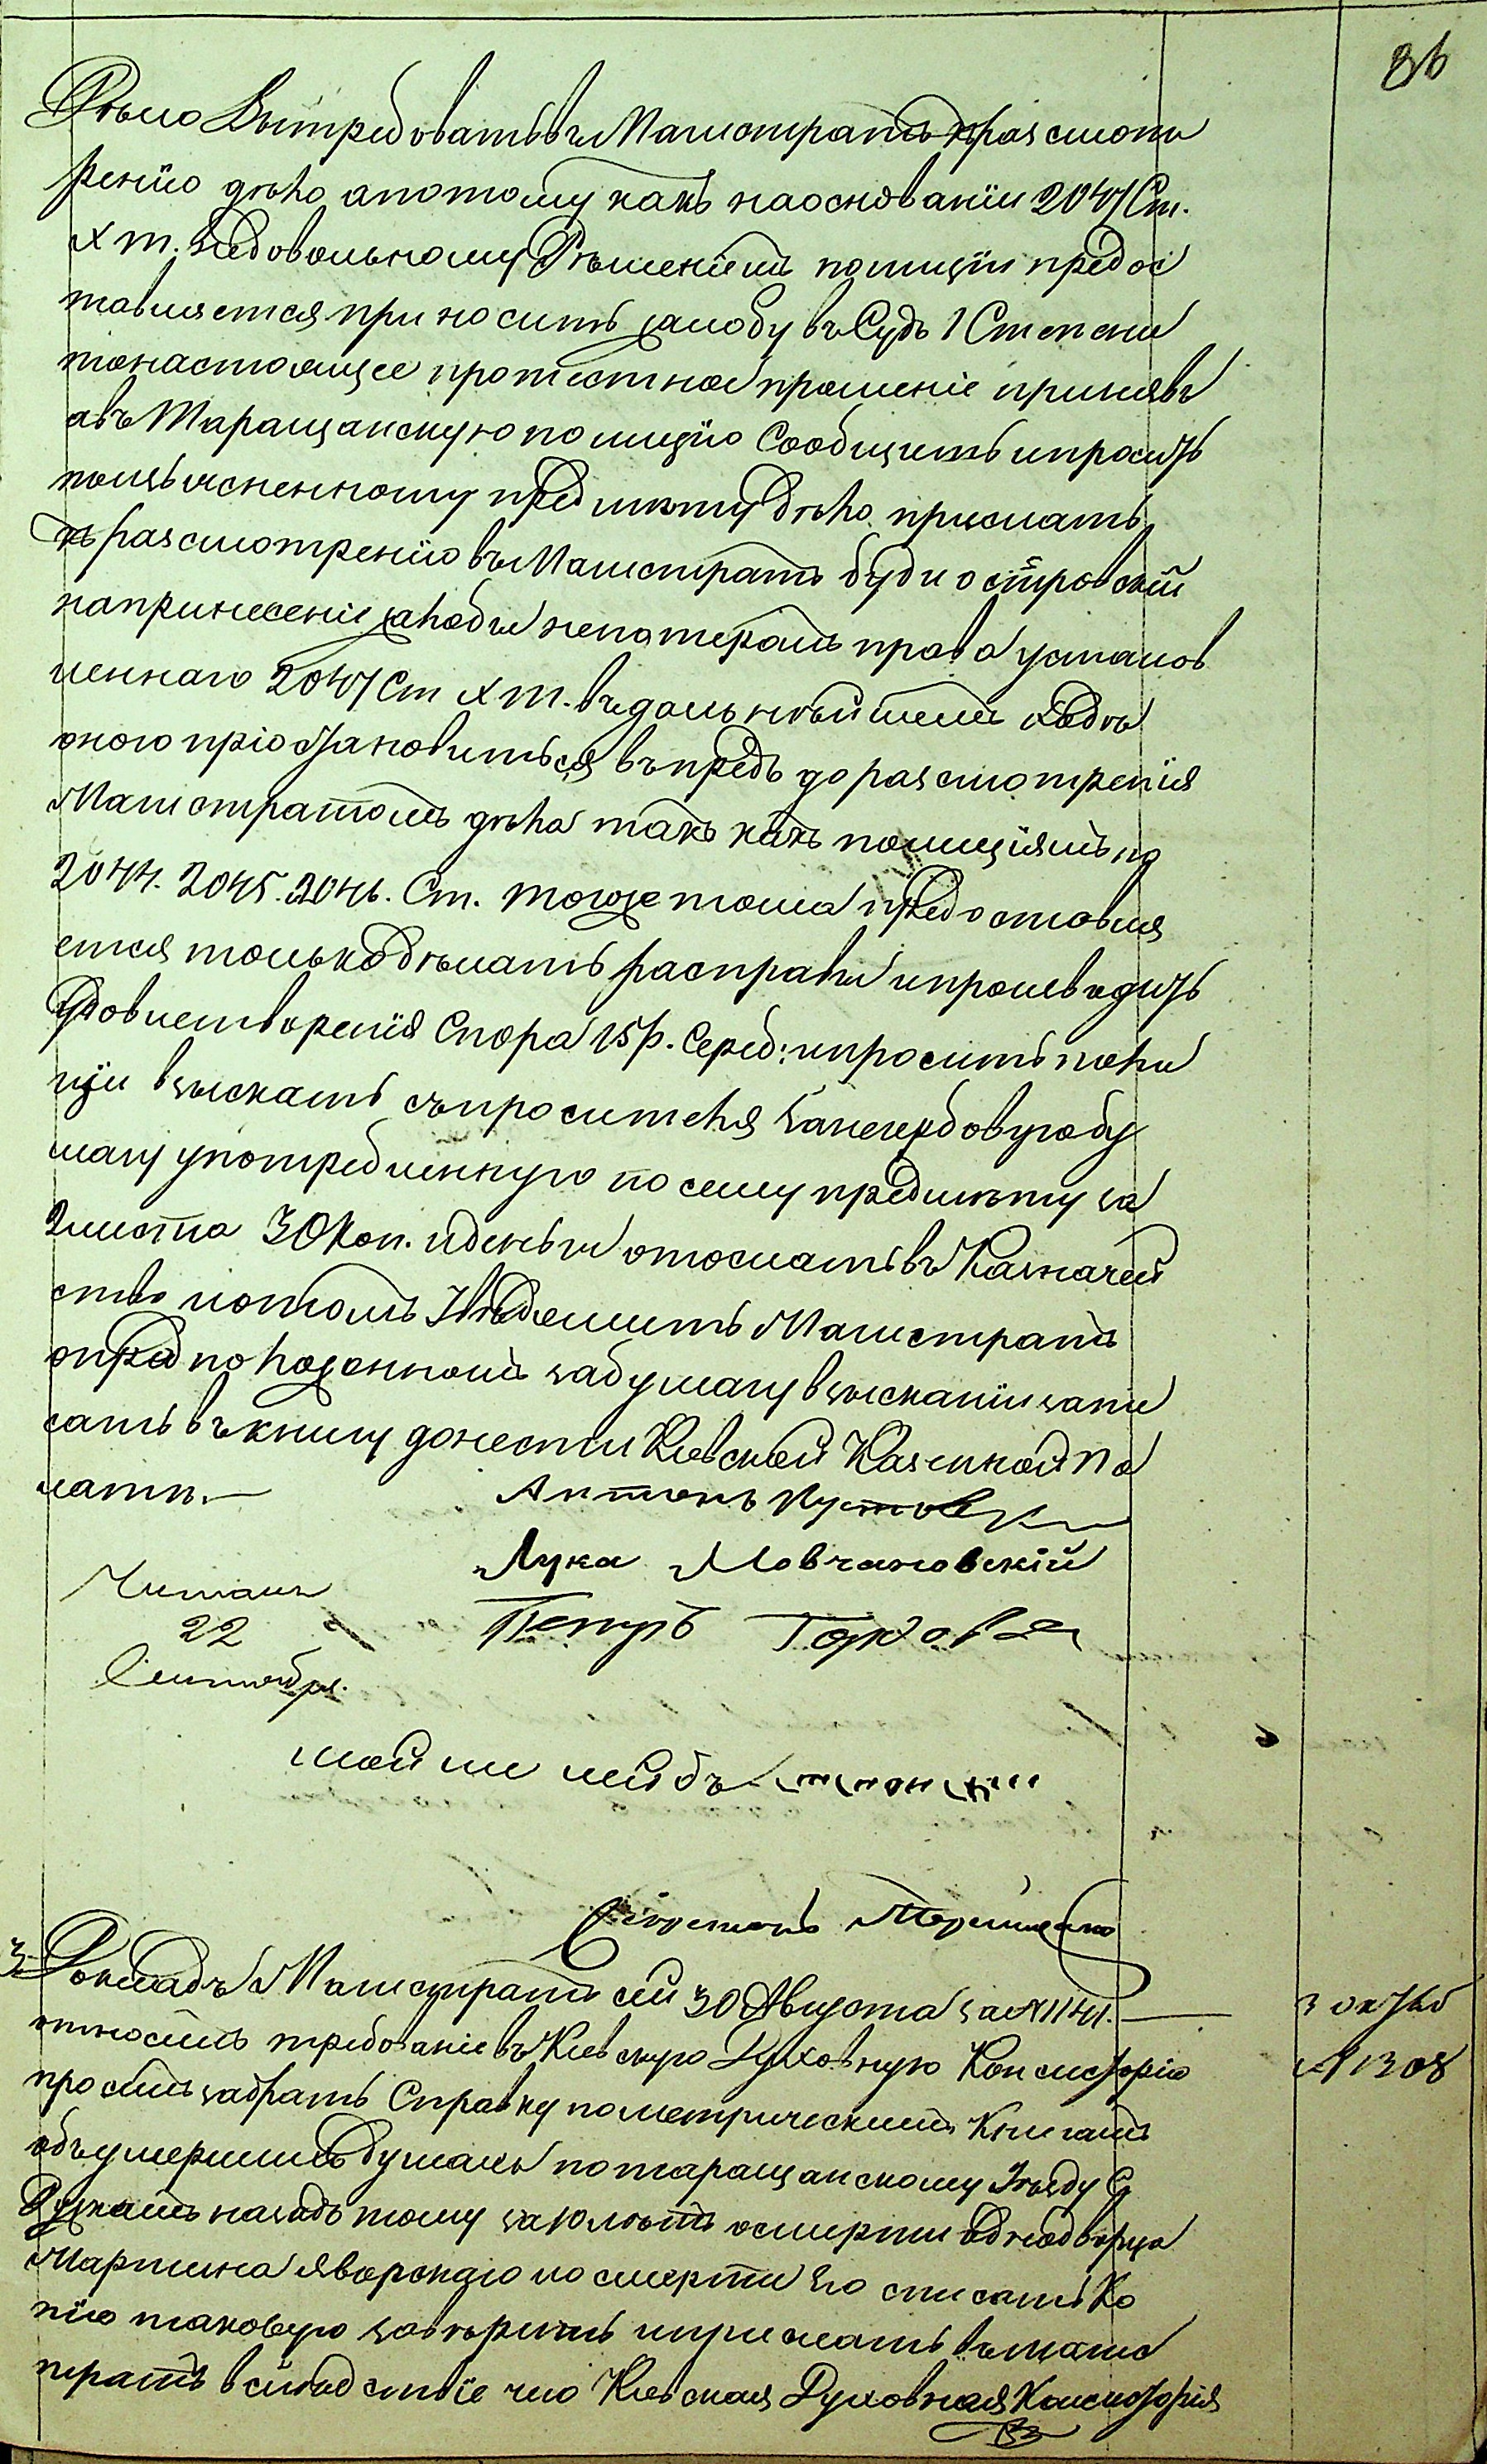 36
Рѣшено Вытребовать въ Магистратъ къ разсмот
ренію дѣло, а потому какъ на основаніи 2047 Ст.
X т. Недовольному Рѣшеніемъ полиціи предос
тавляется приносить жалобу въ Судъ 1 Степени
то настоящее протестное прошеніе принявъ
а въ Таращанскую полицію Сообщить и просить
по изъясненному предмету дѣло прислать
къ разсмотренію въ Магистратъ буди островскій
на принесеніе жалобы не потерялъ права установ
леннаго 2047 Ст X т. въ дальнѣйшемъ
оного пріостановиться въ предь до разсмотренія
Магистратомъ дѣла такъ какъ полиціямъ по
2044. 2045. 2046. Ст. того же тома предоставля
ется только дѣлать расправы и производить
Удовлетворенія Спора 15 р. Сереб: и просить поли
ціи взыскать съ просителя за негербовую бу
магу употребленную по сему предмету за
2 листа 30 коп. и деньги отослать въ Казначей
ство и о томъ Увѣдомить Магистратъ
о предположенномъ за бумагу взысканіи запи
сать въ книгу донести Кіевской Казенной Па
латѣ.—
Антонъ
Лука Мовчановскій
Петръ
Читалъ
22
Сентября.
лейбъ
Секретарь Терещенко
3. Докладъ Магистратъ сей 30 Августа за № 1141. —
относилъ требованіе въ Кіевскую Духовную Консисторію
просилъ забрать Справку по метрическимъ Книгамъ
объ умершихъ душахъ по таращанскому Уѣзду С
назадъ тому лѣтъ о смерти однодворца
Мартина Яворскаго о смерти его списать Ко
пію таковую завѣрить и прислать въ маги
стратъ в слѣдствіе чего Кіевская Духовная Консисторія
3 октяб
№ 1308